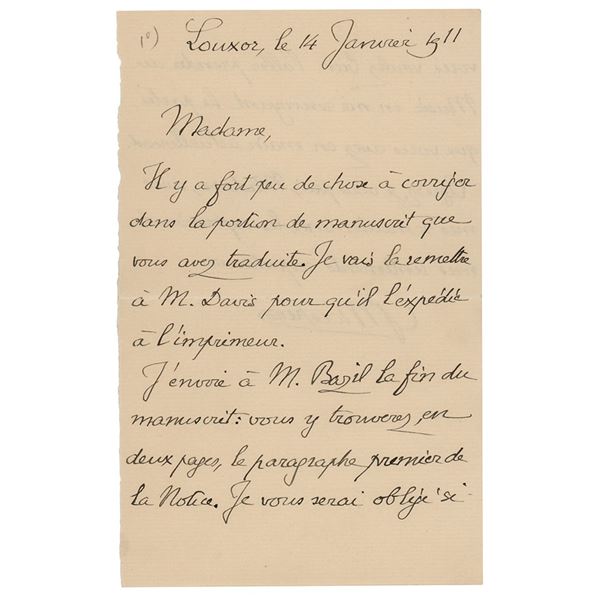 1°) Louxor, le 14 Janvier 1911
Madame,
Il y a fort peu de chose à corriger
dans la portion de manuscrit que
vous avez traduite. Je vais la remettre
à M. Davis pour qu'il l'expédie
à l'imprimeur.
J'envoie à M. Bazil la fin du
manuscrit: vous y trouverez, en
deux pages, le paragraphe premier de
la Notice. Je vous serai obligé si